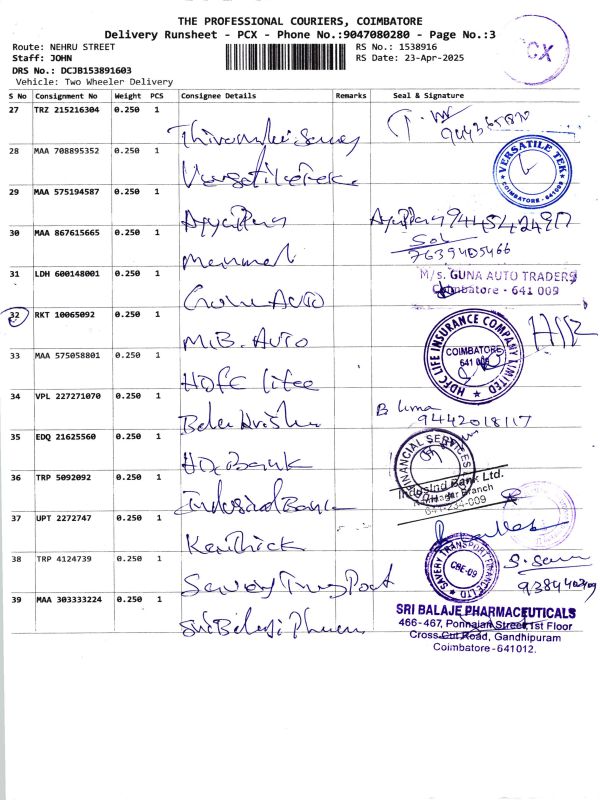 THE PROFESSIONAL COURIERS, COIMBATORE
Delivery Runsheet - PCX - Phone No.:9047080280 - Page No.:3
CX
Route: NEHRU STREET
Staff: JOHN
DRS No.: DCJB153891603
Vehicle: Two Wheeler Delivery
RS No.: 1538916
RS Date: 23-Apr-2025
S No Consignment No Weight PCS Consignee Details Remarks Seal & Signature
27 TRZ 215216304 0.250 1
28 MAA 708895352 0.250 1
VERSATILE TEK
COIMBATORE - 641009
29 MAA 575194587 0.250 1
Ayyappan
30 MAA 867615665 0.250 1
7639405466
31 LDH 600148001 0.250 1
Guna Auto
M/s. GUNA AUTO TRADERS
Coimbatore - 641 009
32 RKT 10065092 0.250 1
M.B. Auto
33 MAA 575058801 0.250 1
HDFC life
HDFC LIFE INSURANCE COMPANY LIMITED
COIMBATORE
641 009
34 VPL 227271070 0.250 1
Bala Krishna
B Uma
9442018117
35 EDQ 21625560 0.250 1
Bank
FINANCIAL SERVICES
36 TRP 5092092 0.250 1
Indusind Bank
IndusInd Bank Ltd.
Branch
641-234-009
37 UPT 2272747 0.250 1
Karthick
38 TRP 4124739 0.250 1
Savery Transport
SAVERY TRANSPORT FINANCE LTD
CBE-09
39 MAA 303333224 0.250 1
Sri Balaji Pharma
SRI BALAJE PHARMACEUTICALS
466-467, Ponnaian Street 1st Floor
Cross Cut Road, Gandhipuram
Coimbatore - 641012.